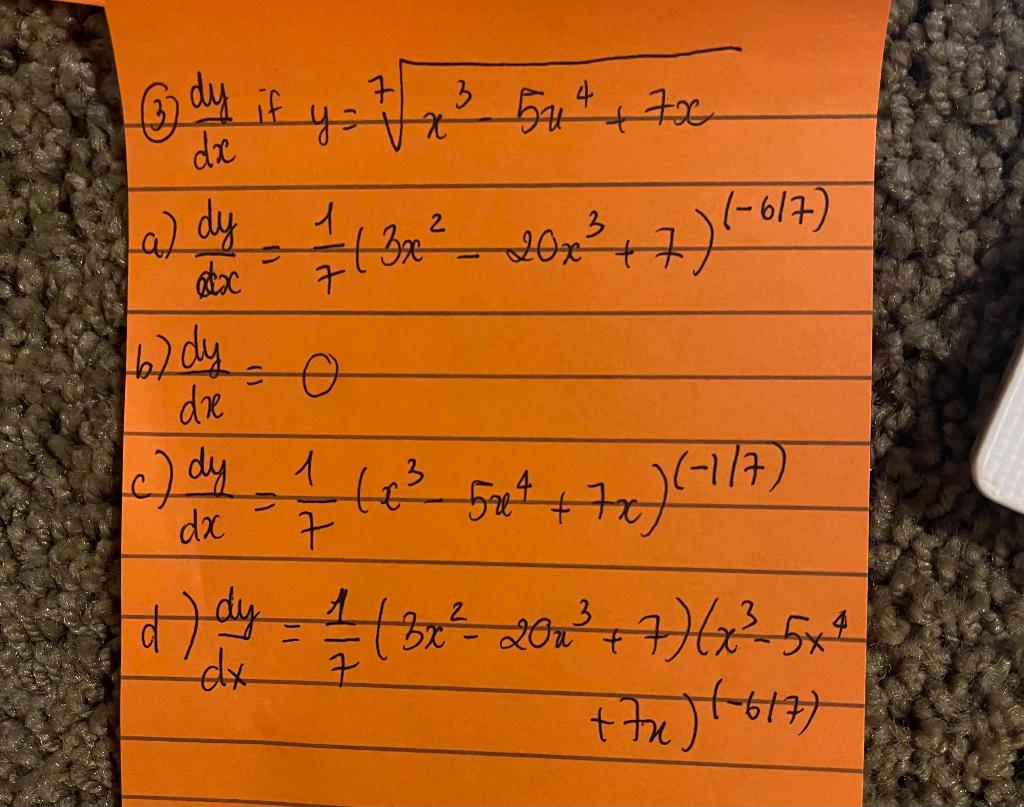 ③ dy/dx if y = ⁷√(x³ - 5x⁴ + 7x)
a) dy/dx = 1/7 (3x² - 20x³ + 7)^(-6/7)
b) dy/dx = 0
c) dy/dx = 1/7 (x³ - 5x⁴ + 7x)^(-1/7)
d) dy/dx = 1/7 (3x² - 20x³ + 7)(x³ - 5x⁴
+ 7x)^(-6/7)